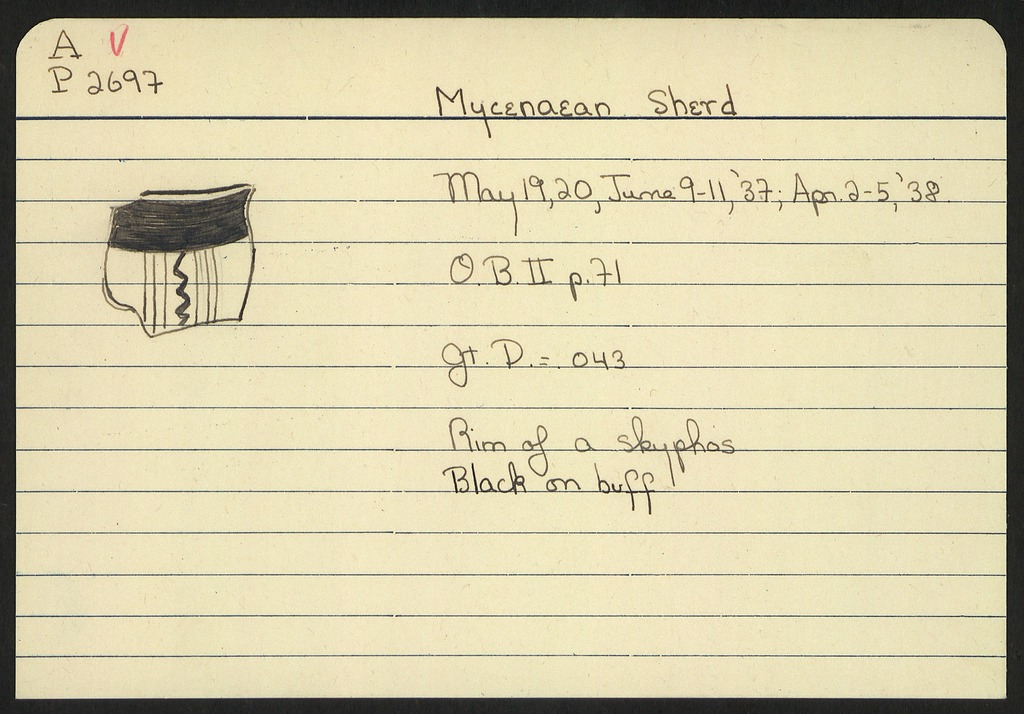 A V
P 2697
Mycenaean Sherd
May 19, 20, June 9-11, '37; Apr. 2-5, '38.
O.B. II p. 71
Gt. D. = .043
Rim of a skyphos
Black on buff